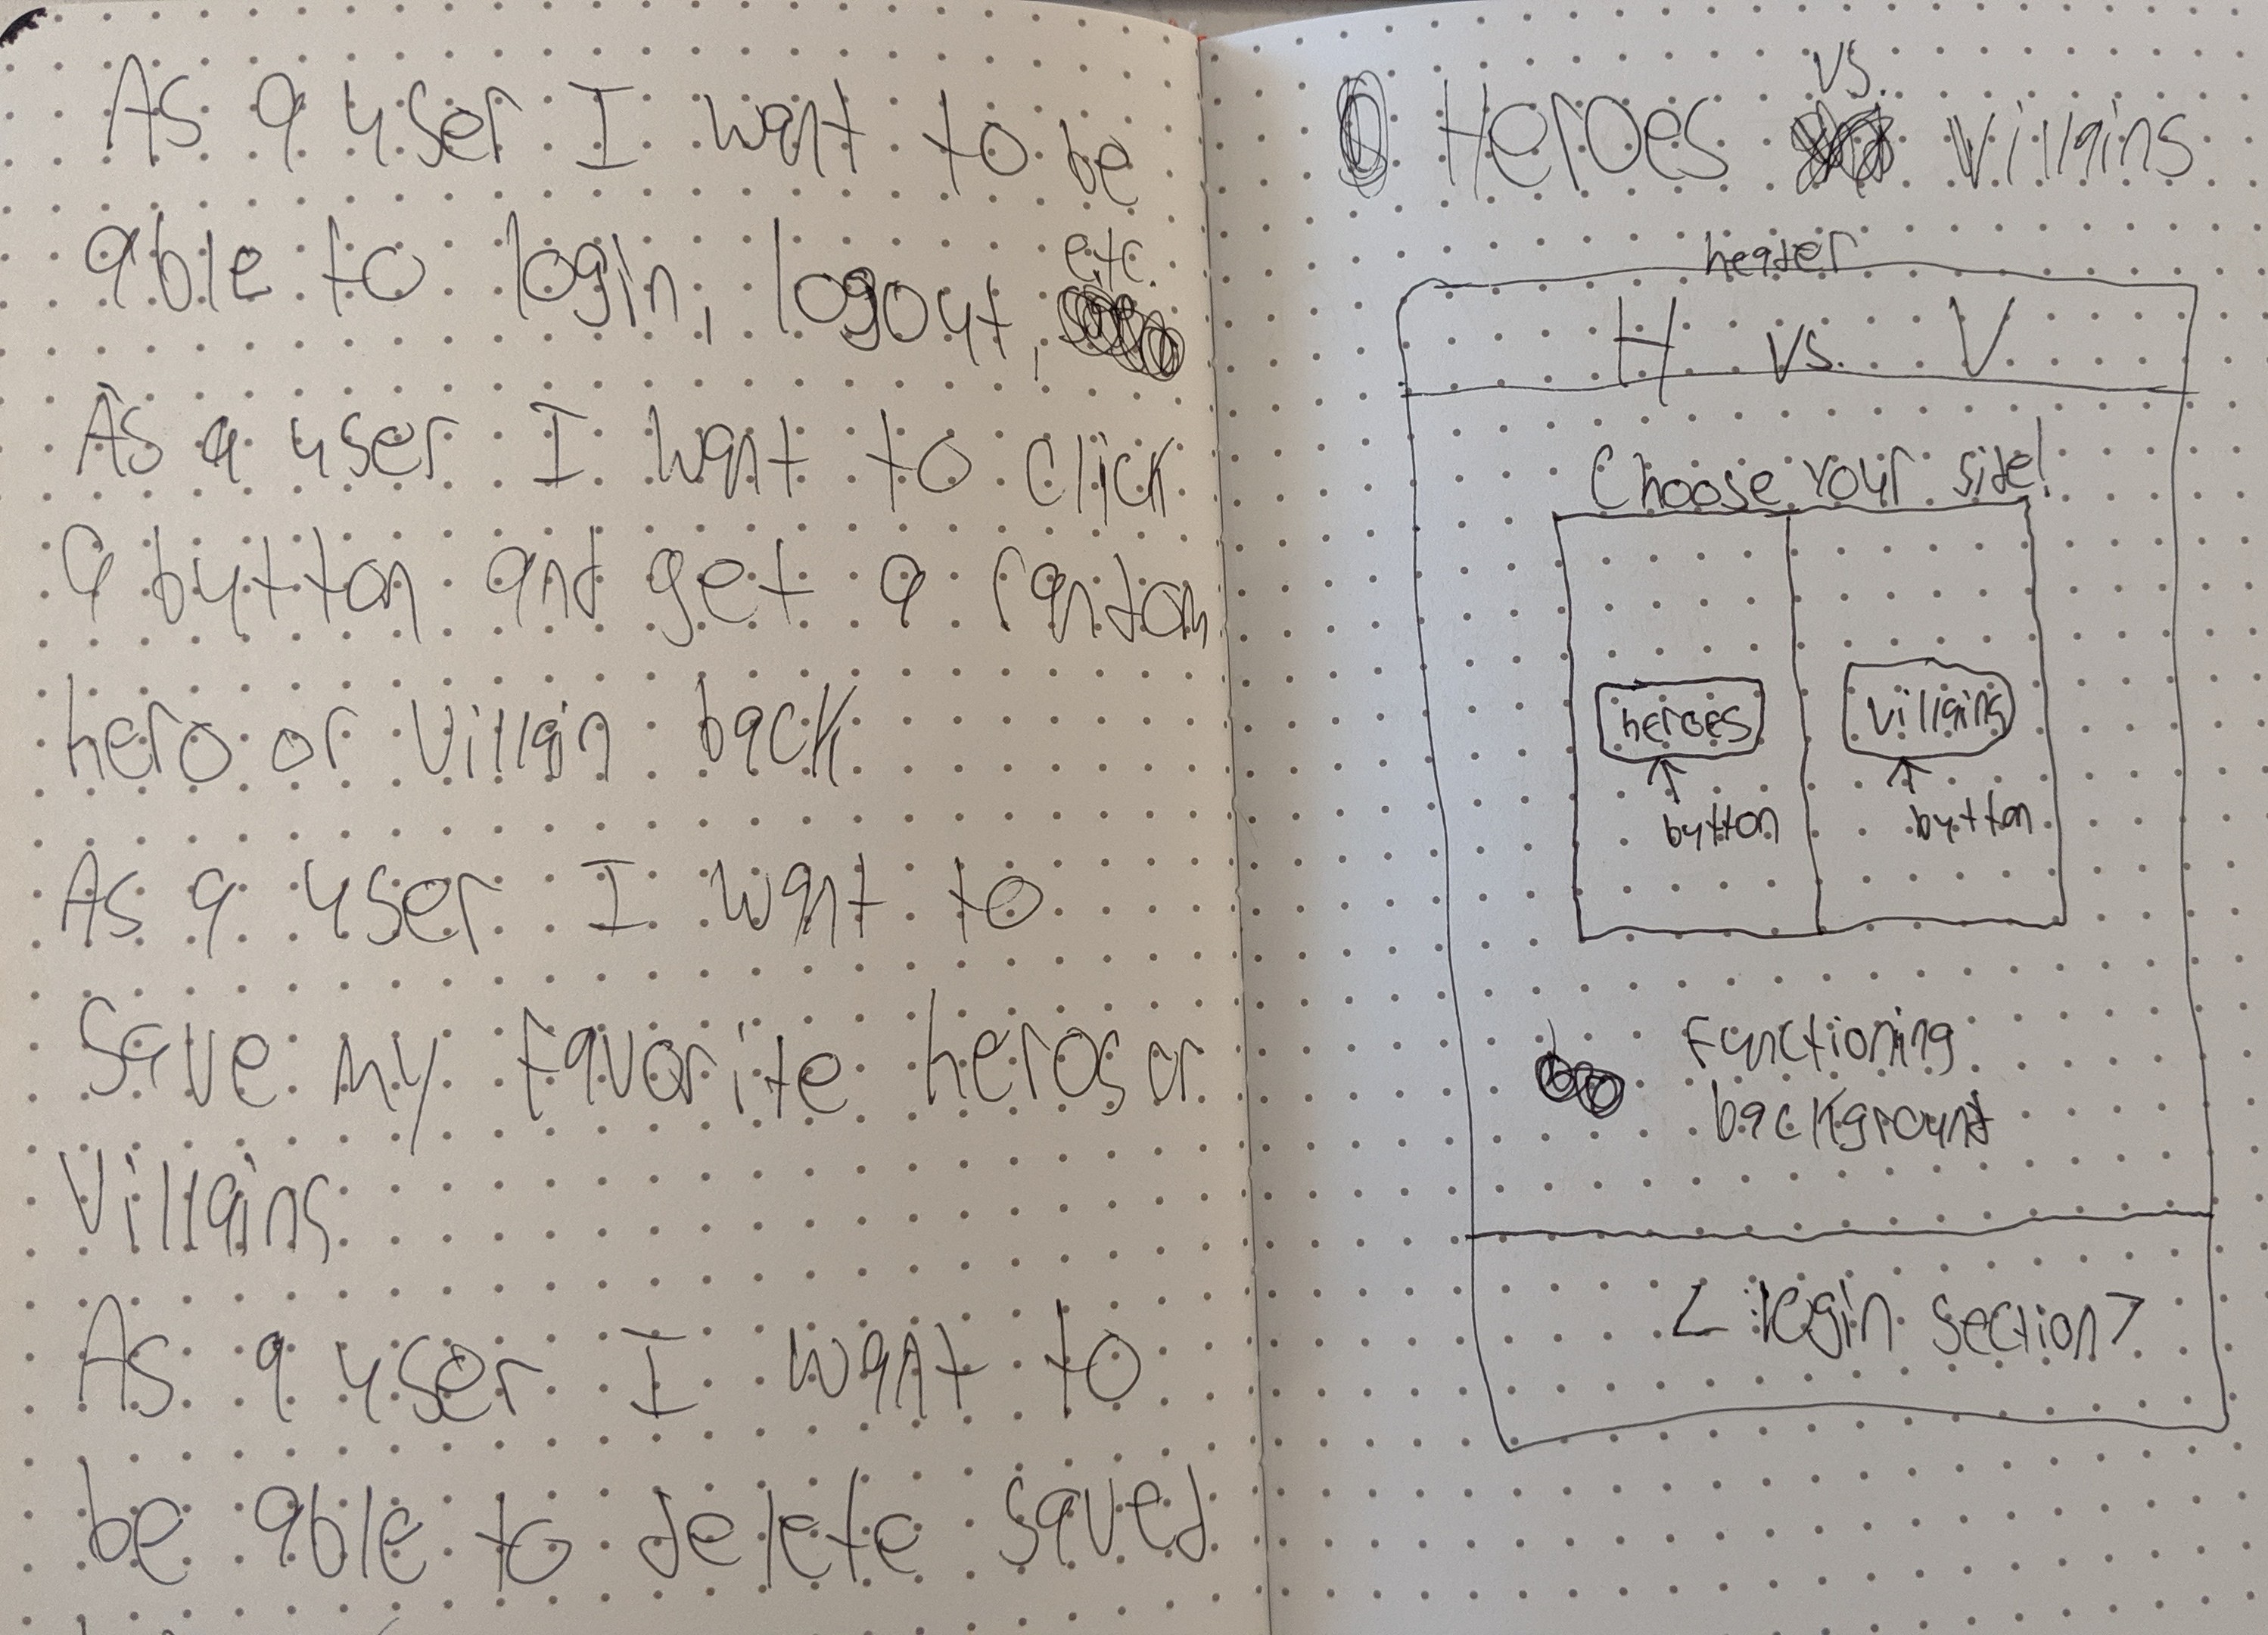 As a user I want to be
able to login, logout, etc.
As a user I want to click
a button and get a random
hero or villain back
As a user I want to
save my favorite heros or
villains
As a user I want to
be able to delete saved
Heroes vs. Villains
header
H vs. V
Choose your side!
heroes villains
button button
Functioning
background
< login section >